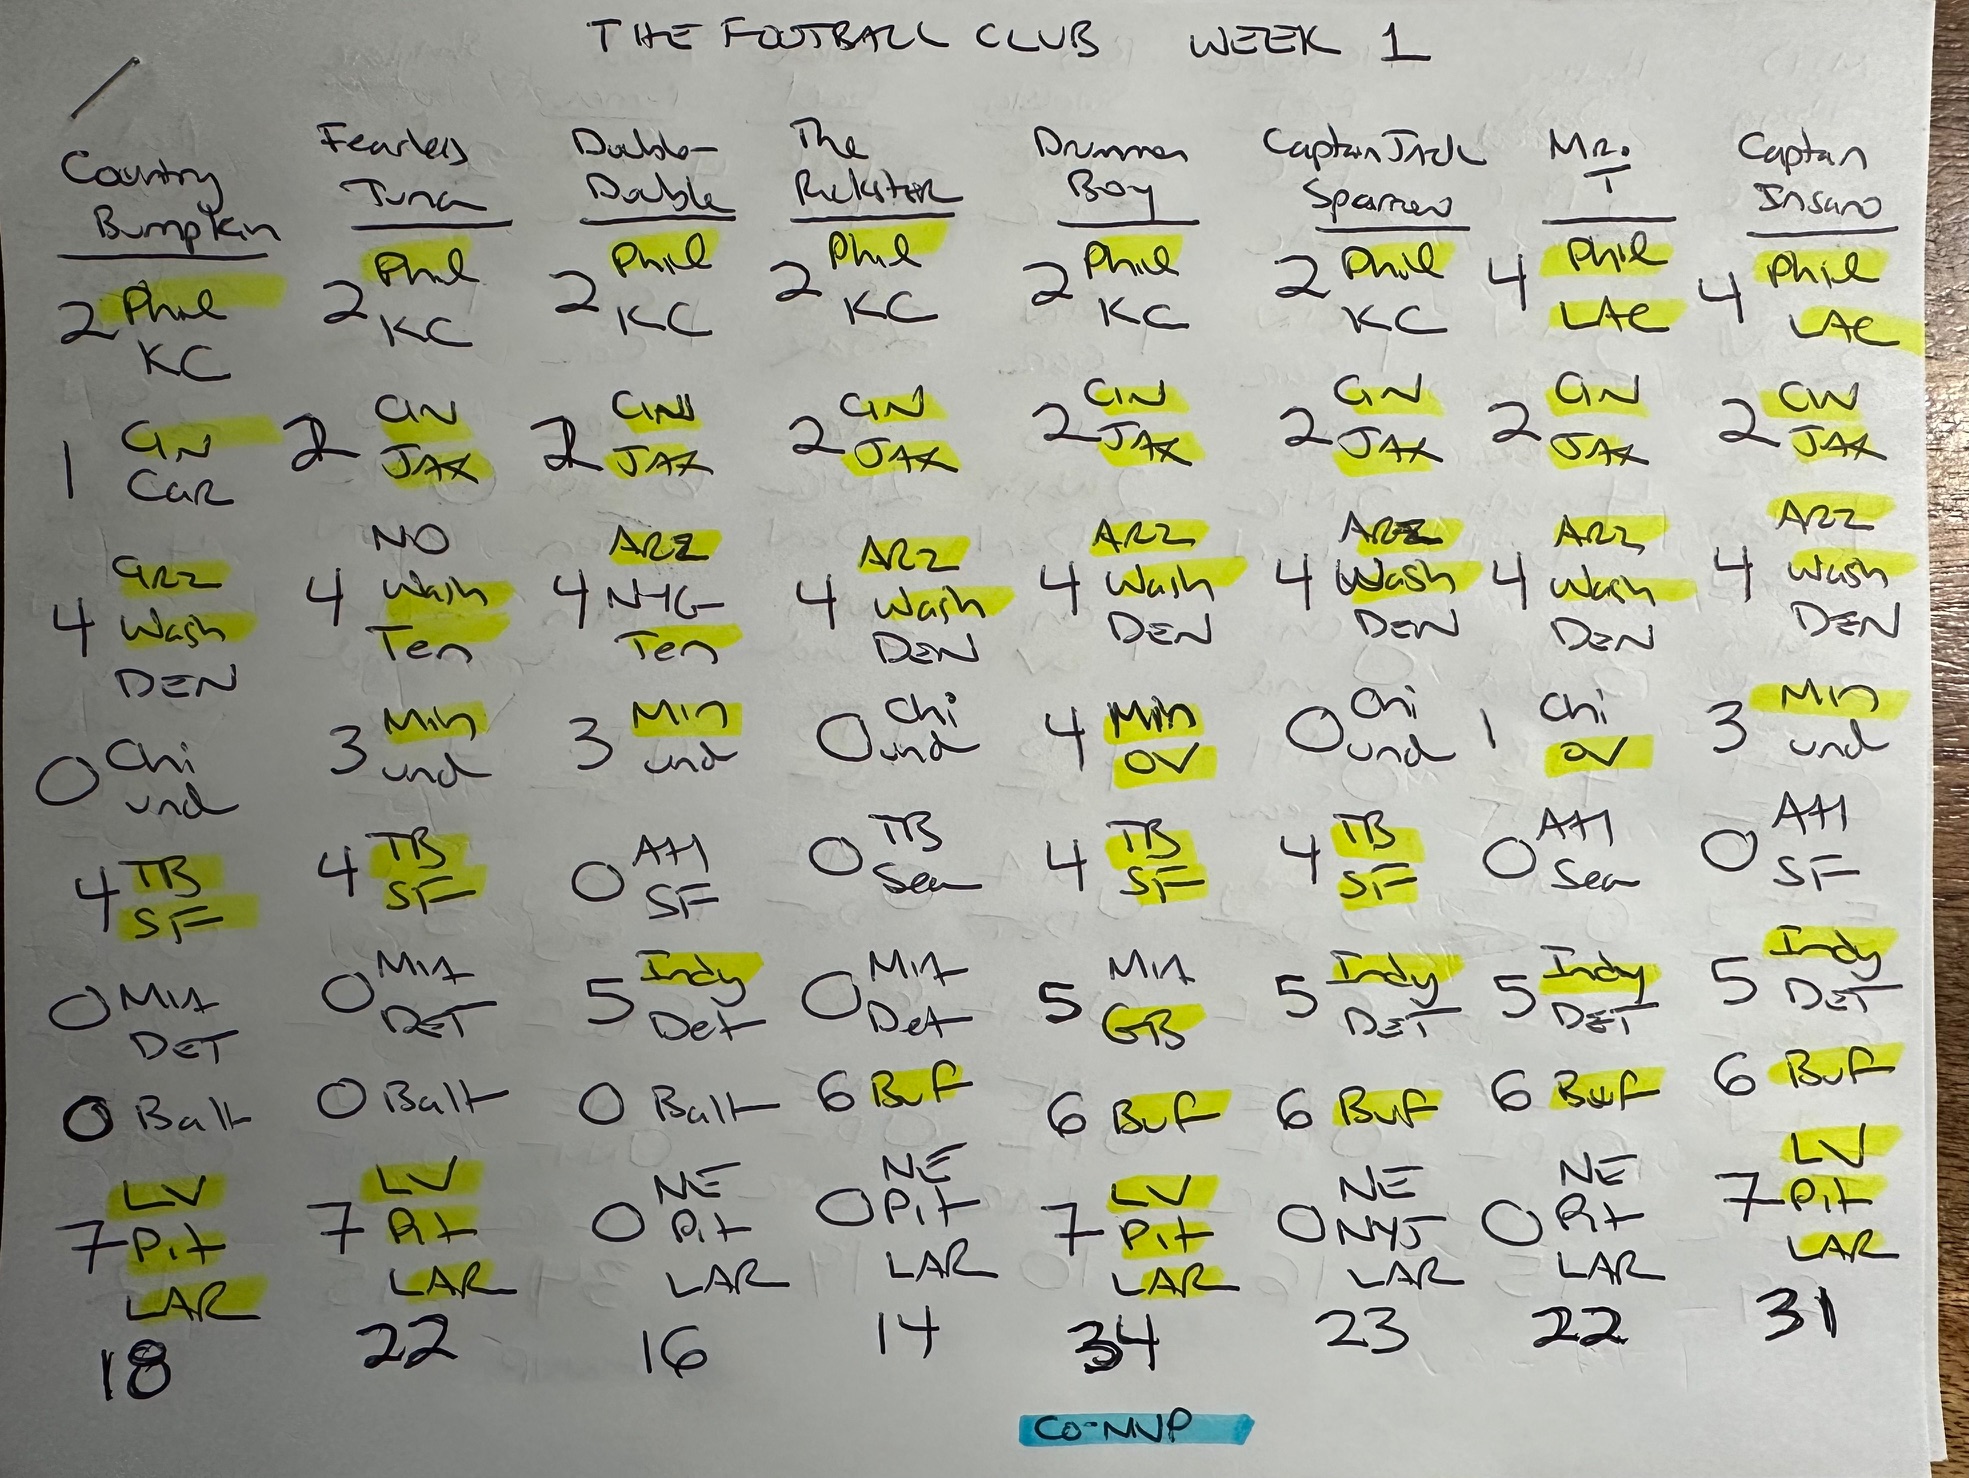 THE FOOTBALL CLUB WEEK 1
Country
Bumpkin
2 Phil
KC
1 CIN
Car
4 ARZ
Wash
DEN
0 Chi
und
4 TB
SF
0 MIA
DET
0 Balt
7 LV
Pit
LAR
18
Fearless
Tuna
2 Phil
KC
2 CIN
JAX
NO
4 Wash
Ten
3 Min
und
4 TB
SF
0 MIA
DET
0 Balt
LV
7 Pit
LAR
22
Double-
Double
2 Phil
KC
2 CIN
JAX
ARZ
4 NYG
Ten
3 Min
und
0 Atl
SF
5 Indy
Det
0 Balt
NE
0 Pit
LAR
16
The
Rickster
2 Phil
KC
2 CIN
JAX
ARZ
4 Wash
DEN
0 Chi
und
0 TB
Sea
0 MIA
Det
6 Buf
NE
0 Pit
LAR
14
Drummer
Boy
2 Phil
KC
2 CIN
JAX
ARZ
4 Wash
DEN
4 Min
OV
4 TB
SF
5 MIA
GB
6 Buf
LV
7 Pit
LAR
34
CO-MVP
Captain Jack
Sparrow
2 Phil
KC
2 CIN
JAX
ARZ
4 Wash
DEN
0 Chi
und
4 TB
SF
5 Indy
DET
6 Buf
NE
0 NYJ
LAR
23
Mr.
T
4 Phil
LAC
2 CIN
JAX
ARZ
4 Wash
DEN
1 Chi
OV
0 Atl
Sea
5 Indy
DET
6 Buf
NE
0 Pit
LAR
22
Captain
Insano
4 Phil
LAC
2 CIN
JAX
ARZ
4 Wash
DEN
3 Min
und
0 Atl
SF
5 Indy
DET
6 Buf
LV
7 Pit
LAR
31